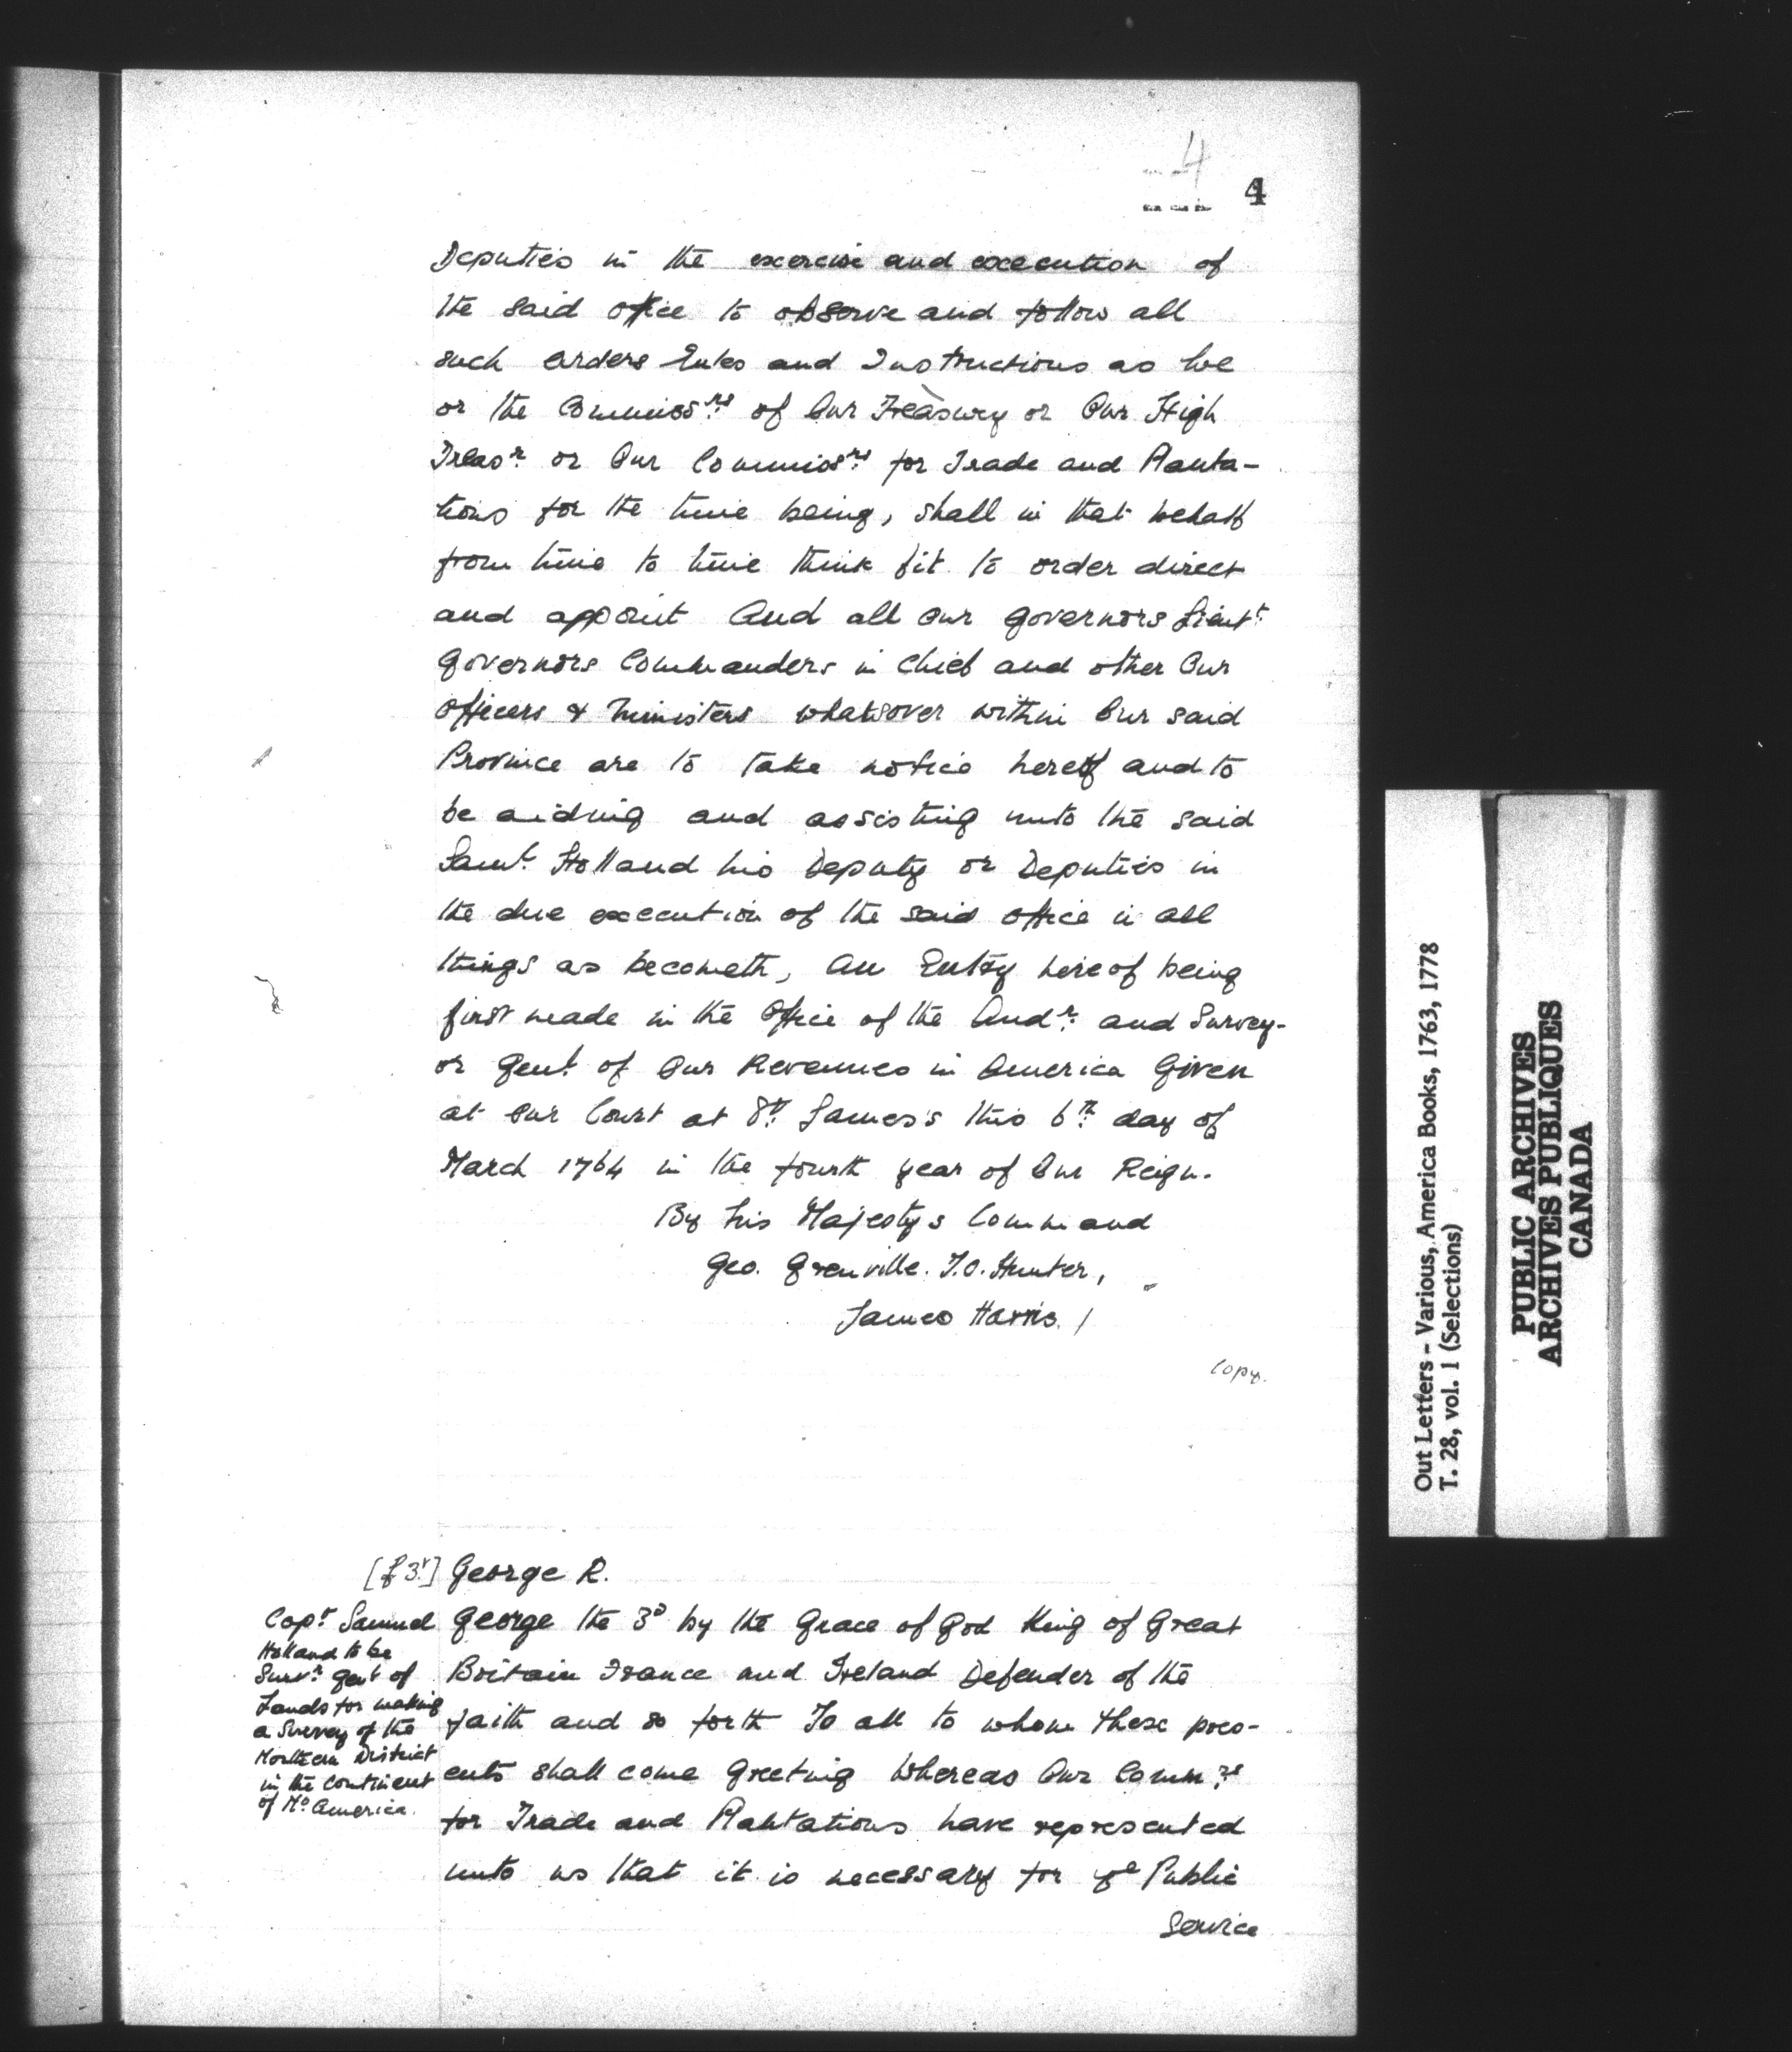 4
4
Deputies in the exercise and execution of
the said office to observe and follow all
such orders Rules and Instructions as We
or the Commiss.rs of Our Treasury or Our High
Treas.r or Our Commiss.rs for Trade and Planta-
tions for the time being, shall in that behalf
from time to time think fit to order direct
and appoint And all our governors Lieut.t
Governors Commanders in Chief and other Our
Officers & Ministers whatsover within Our said
Province are to take notice hereof and to
be aiding and assisting unto the said
Sam.l Holland his Deputy or Deputies in
the due execution of the said office in all
things as becometh, An Entry hereof being
first made in the Office of the Aud.r and Survey-
or Gen.l of Our Revenues in America Given
at Our Court at S.t James's this 6.th day of
March 1764 in the fourth year of Our Reign.
By his Majestys Command
Geo. Grenville. T.O. Hunter,
James Harris. /
Copy.
[f 3.v] George R.
Cap.t Samuel
Holland to be
Surv.r Gen.l of
Lands for making
a Survey of the
Northern District
in the Continent
of N.o America.
George the 3.d by the Grace of God King of Great
Britain France and Ireland Defender of the
faith and so forth To all to whom these pres-
ents shall come Greeting Whereas Our Comm.rs
for Trade and Plantations have represented
unto us that it is necessary for ye Public
Service
Out Letters - Various, America Books, 1763, 1778
T. 28, vol. 1 (Selections)
PUBLIC ARCHIVES
ARCHIVES PUBLIQUES
CANADA